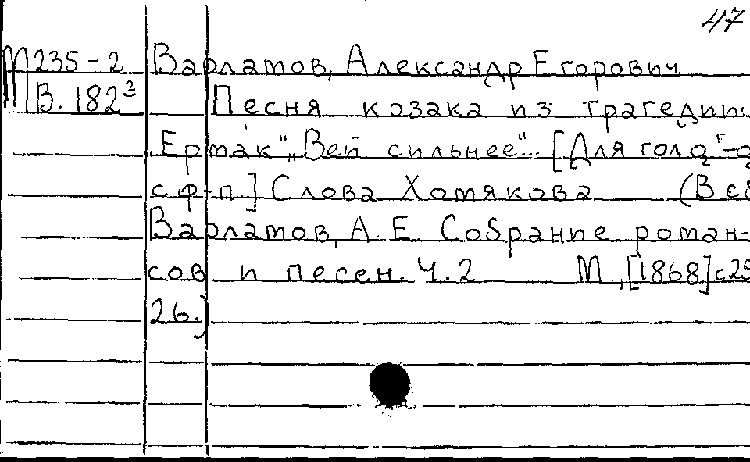 47
М235-2 Варламов, Александр Егорович
В. 182³ Песня козака из трагедии:
„Ермак" „Вей сильнее". [Для гол
с ф-п.] Слова Хомякова (В
Варламов, А. Е. Собрание роман-
сов и песен. Ч. 2 М., [1868] с 25
26.)